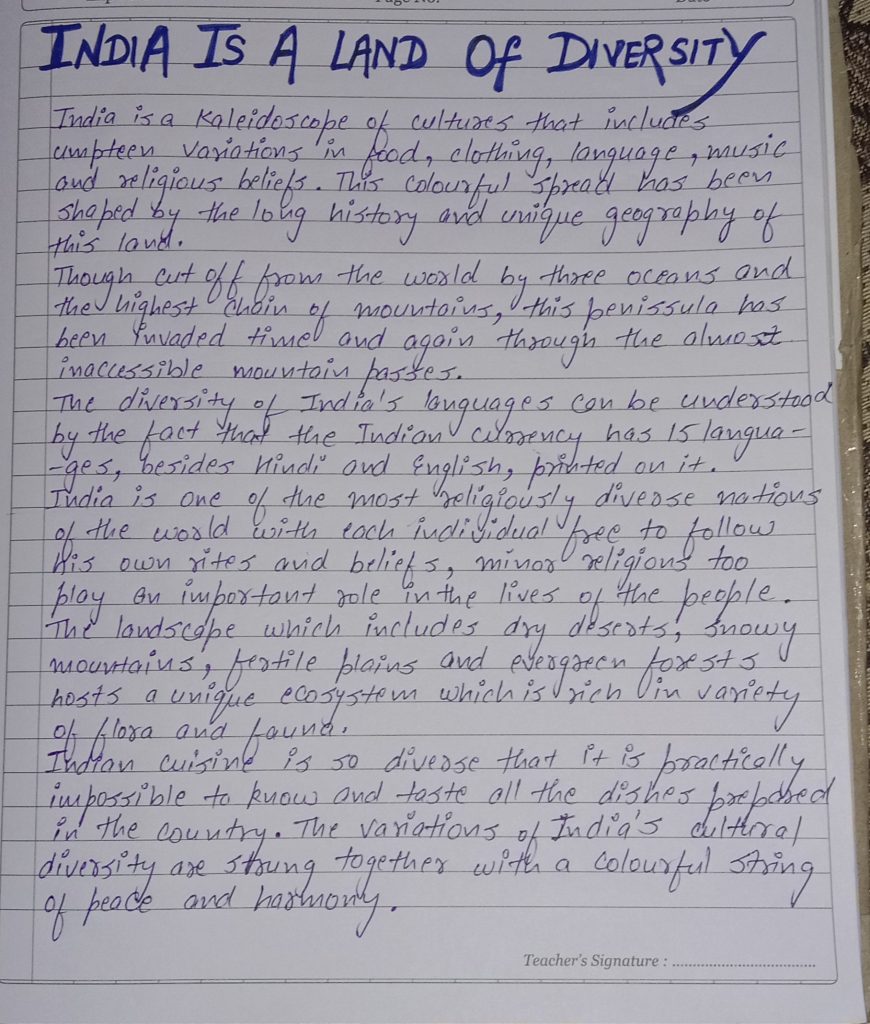 INDIA IS A LAND OF DIVERSITY
India is a kaleidoscope of cultures that includes
umpteen variations in food, clothing, language, music
and religious beliefs. This colourful spread has been
shaped by the long history and unique geography of
this land.
Though cut off from the world by three oceans and
the highest chain of mountains, this penissula has
been invaded time and again through the almost
inaccessible mountain passes.
The diversity of India's languages can be understood
by the fact that the Indian currency has 15 langua-
-ges, besides Hindi and English, printed on it.
India is one of the most religiously diverse nations
of the world with each individual free to follow
his own rites and beliefs, minor religions too
play an important role in the lives of the people.
The landscape which includes dry deserts, snowy
mountains, fertile plains and evergreen forests
hosts a unique ecosystem which is rich in variety
of flora and fauna.
Indian cuisine is so diverse that it is practically
impossible to know and taste all the dishes prepared
in the country. The variations of India's cultural
diversity are strung together with a colourful string
of peace and harmony.
Teacher's Signature : ....................................